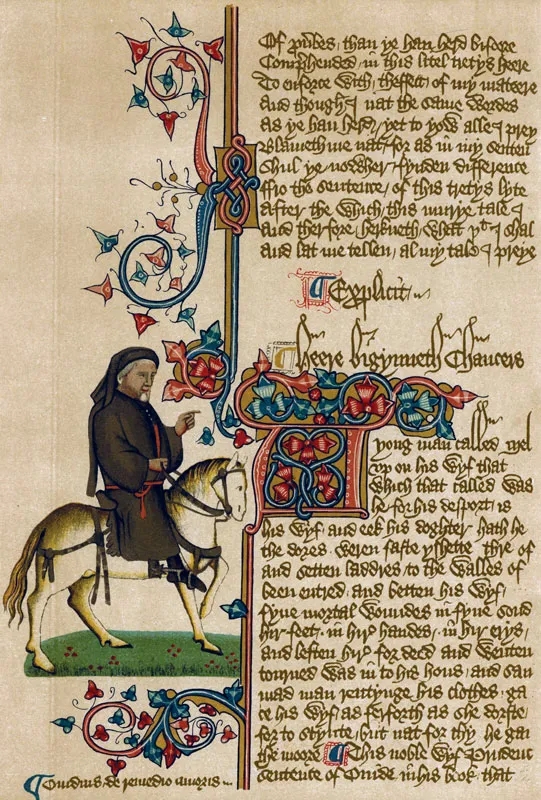 Of puerbes / than ye han herd bifore
Comprehended / in this litel tretys heere
To enforce with / theffect / of my mateere
And though I nat the same wordes
As ye han herd / yet to yow alle I prey
Blameth me nat / for as in my senten
Shul ye nowher / fynden difference
ffro the sentence / of this tretys lyte
After the which / this murye tale I
And therfore / herkneth / what yt I shal
And lat me tellen / al my tale I preye
¶ Explicit
¶ Heere bigynneth Chaucers
A yong man called Mel
vp on his wyf that
which that called was
he for his desport / is
his wyf / and eek his doghter hath he
the dores weren faste yshette / thre of
and setten laddres / to the walles of
been entred / and betten his wyf /
fyue mortal woundes in fyue sond
hir feet / in hir handes / in hir erys /
and leften hir for deed and wenten
torned was in to his hous / and sau
mad man rentynge his clothes / ga
ce his wyf / as ferforth as she dorste
for to stynte / but nat for thy he ga
the moore ¶ This noble wyf Prudenc
sentence of Ouide in his book / that
¶ Ouidius de remedio amoris